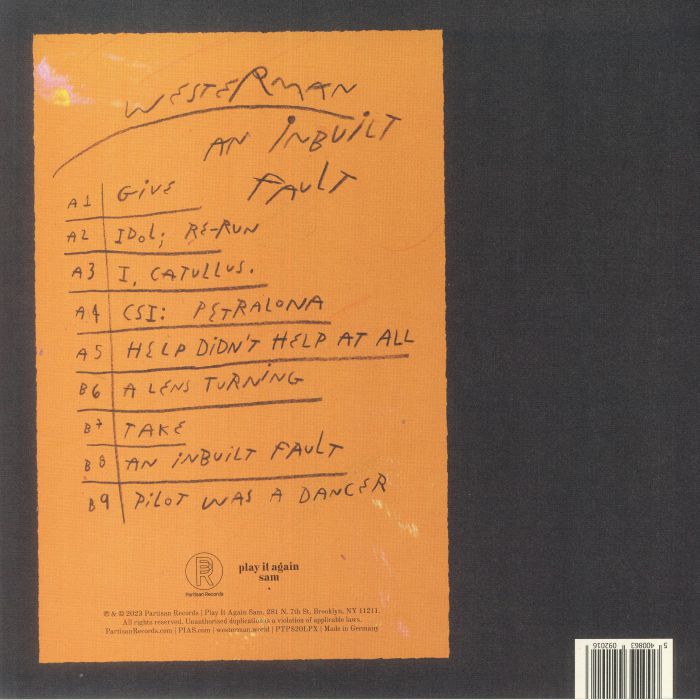 WESTERMAN
AN INBUILT
FAULT
A1 GIVE
A2 IDOL; RE-RUN
A3 I, CATULLUS.
A4 CSI: PETRALONA
A5 HELP DIDN'T HELP AT ALL
B6 A LENS TURNING
B7 TAKE
B8 AN INBUILT FAULT
B9 PILOT WAS A DANCER
PR
Partisan Records
play it again
sam
.
℗ & © 2023 Partisan Records | Play It Again Sam. 281 N. 7th St, Brooklyn, NY 11211.
All rights reserved. Unauthorised duplication is a violation of applicable laws.
PartisanRecords.com | PIAS.com | westerman.world | PTPS20LPX | Made in Germany
5 400863 092016